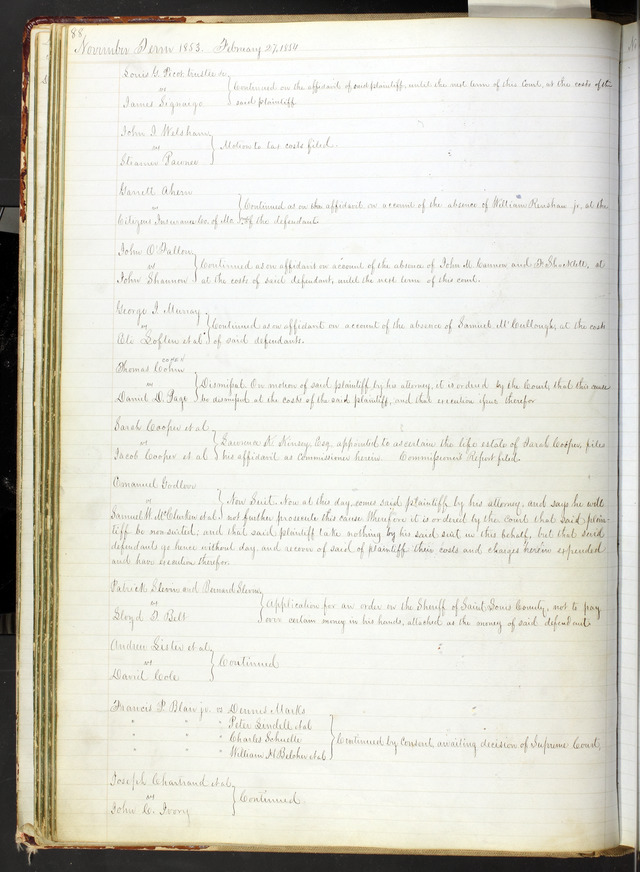 88
November Term 1853. February 27, 1854
Louis G. Picot trustee &c
vs
James Signaigo
Continued on the affidavit of said plaintiff, until the next term of this Court, at the costs of the
said plaintiff
John J. Welsham
vs
Steamer Pawnee
Motion to tax costs filed.
Garrett Ahern
vs
Citizens Insurance Co. of Mo.
Continued as on the affidavit on account of the absence of William Renshaw jr. at the
of the defendant
John O'Fallon
vs
John Shannon
Continued as on affidavit on account of the absence of John M. and at
at the costs of said defendant, until the next term of this court.
George J. Murray
vs
Loflen et al
Continued as on affidavit on account of the absence of Samuel McCullough, at the costs
of said defendants.
Thomas Cohen
vs
Daniel D. Page
Dismissed. On motion of said plaintiff by his attorney, it is ordered by the Court, that this cause
be dismissed at the costs of the said plaintiff, and that execution issue therefor
Sarah Cooper et al
vs
Jacob Cooper et al
Lawrence N. Kinsey, Esq. appointed to ascertain the life estate of Sarah Cooper, files
his affidavit as commissioner herein. Commissioners Report filed.
Emanuel Godlove
vs
Samuel W. McClurkin et al
Non Suit. Now at this day, comes said plaintiff by his attorney, and says he will
not further prosecute this cause. Therefore it is ordered by the court that said plain-
tiff be non suited, and that said plaintiff take nothing by his said suit in this behalf, but that said
defendants go hence without day, and recover of said of plaintiff their costs and charges herein expended
and have execution therefor.
Patrick Slevin and Bernard Slevin
vs
Lloyd T. Belt
Application for an order on the Sheriff of Saint Louis County, not to pay
over certain money in his hands, attached as the money of said defendant
Andrew Lister et al
vs
David Cole
Continued
Francis P. Blair jr. vs Dennis Marks
" " " Peter Lindell et al
" " " Charles Schuetle
" " " William H Belcher et al
Continued by consent, awaiting decision of Supreme Court,
Joseph Chartrand et al
vs
John C. Ivory
Continued